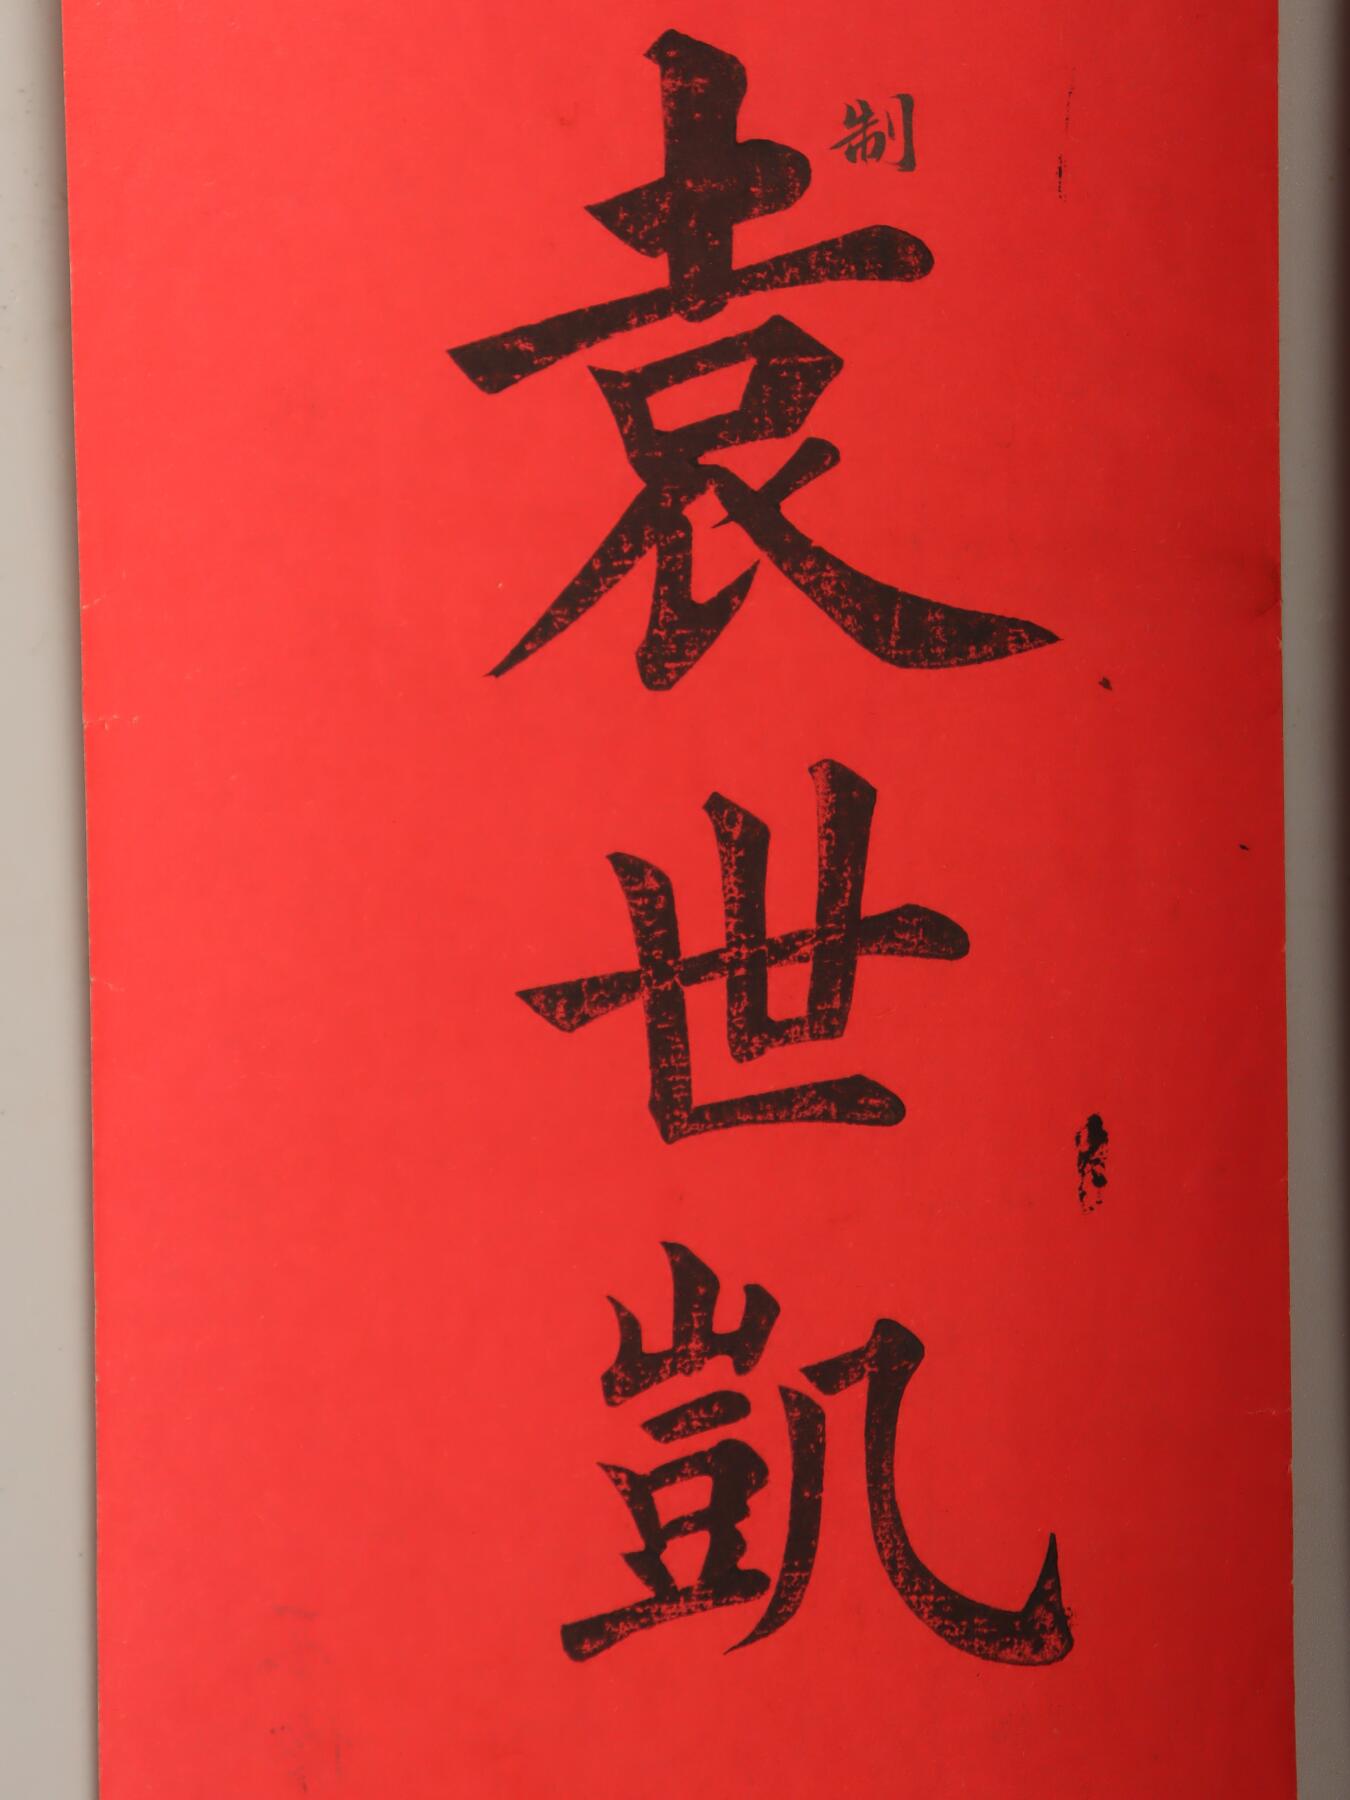 制
袁世凱